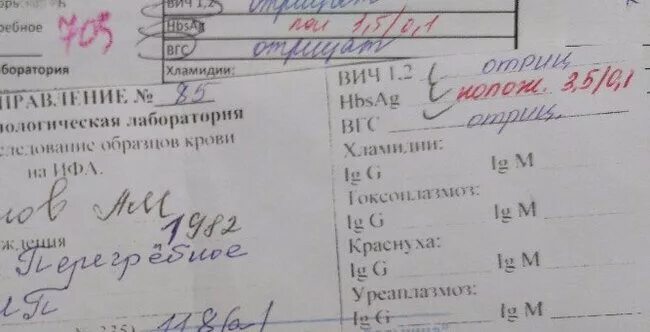 ВИЧ 1,2 отрицат
HbsAg пол 3,5/0,1
ВГС отрицат
Хламидии:
705
ребное
боратория
ПРАВЛЕНИЕ № 85
ологическая лаборатория
следование образцов крови
на ИФА.
ов АМ
1982
ждения
Перегрёбное
ЛП
ВИЧ 1.2 отриц
HbsAg полож. 3,5/0,1
ВГС отриц.
Хламидии:
Ig G Ig M
Токсоплазмоз:
Ig G Ig M
Краснуха:
Ig G Ig M
Уреаплазмоз:
Ig G Ig M